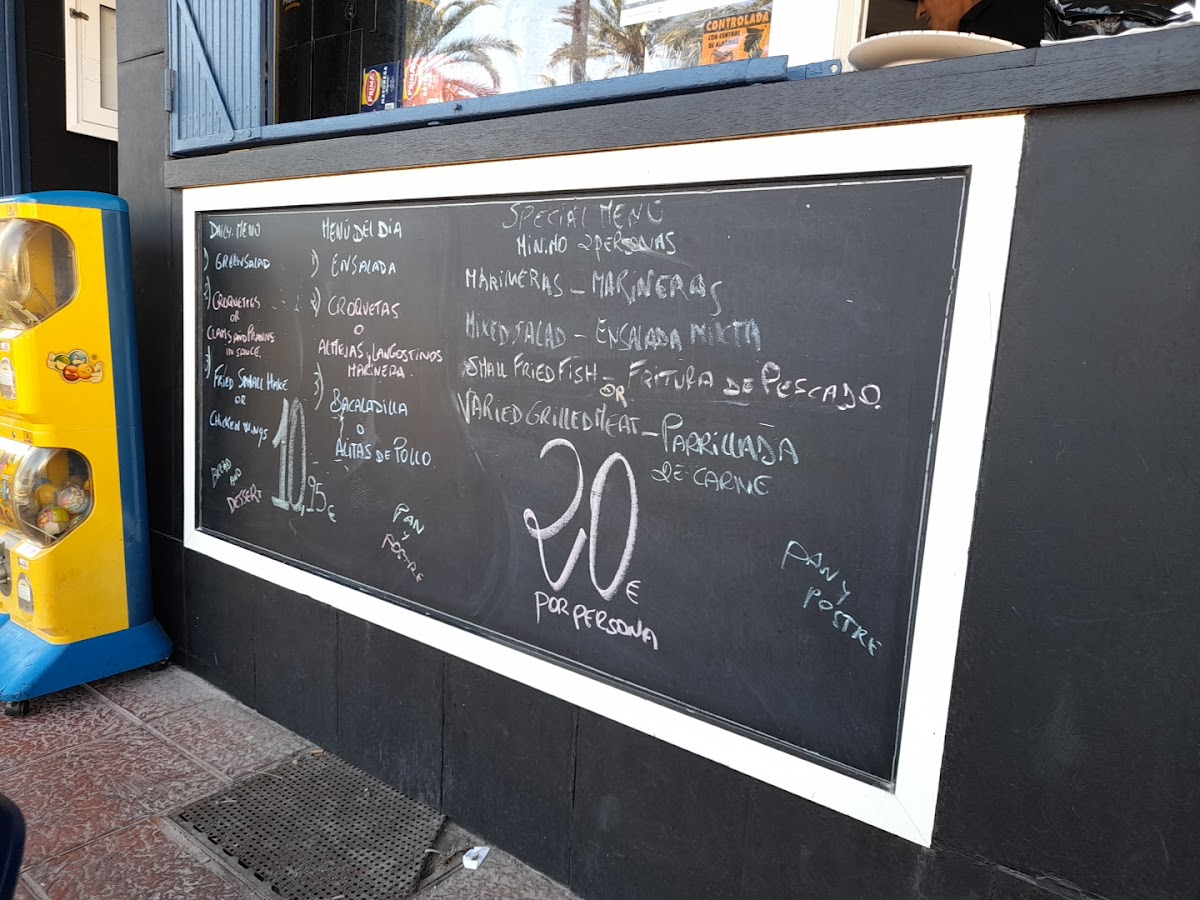 CONTROLADA
CON CENTRAL
DE ALARMAS
PRIMA
DAILY MENU
1) GREEN SALAD
2) CROQUETTES
OR
CLAMS AND PRAWNS
IN SAUCE.
3) FRIED SMALL HAKE
OR
CHICKEN WINGS
BREAD
AND
DESSERT
10,95€
MENÚ DEL DÍA
1) ENSALADA
2) CROQUETAS
O
ALMEJAS Y LANGOSTINOS
MARINERA.
3) BACALADILLA
O
ALITAS DE POLLO.
PAN
Y
POSTRE
SPECIAL MENÚ
MIN.MO 2 PERSONAS
MARINERAS - MARINERAS
MIXED SALAD - ENSALADA MIXTA
SMALL FRIED FISH - FRITURA DE PESCADO.
OR
VARIED GRILLED MEAT - PARRILLADA
DE CARNE
20€
POR PERSONA
PAN Y
POSTRE